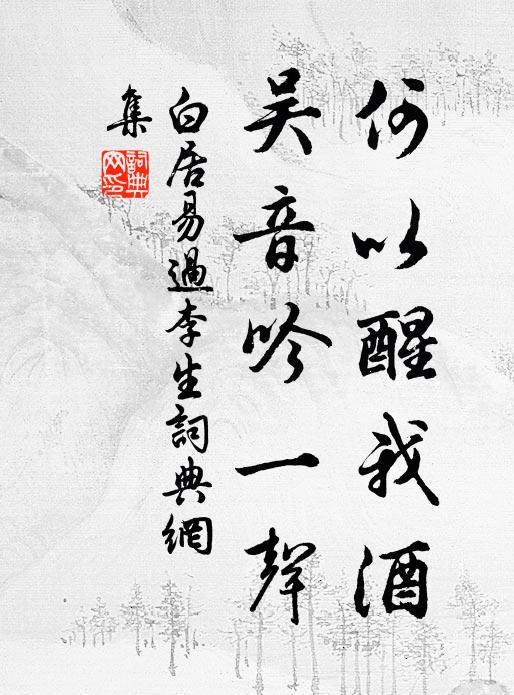 何以醒我酒
吳音吟一聲
白居易過李生詞典網
集
詞典
网印